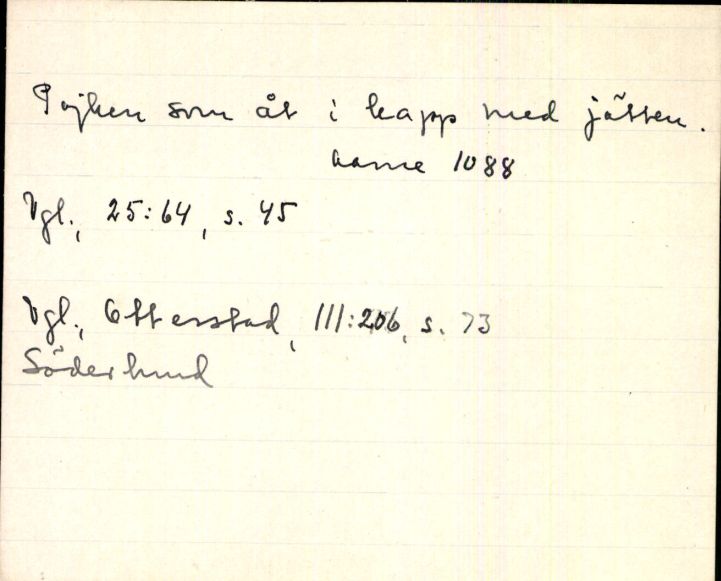 Pojken som åt i kapp med jätten.
Aarne 1088
Vgl., 25:64, s. 45
Vgl., Otterstad, III:206, s. 73
Söderhund